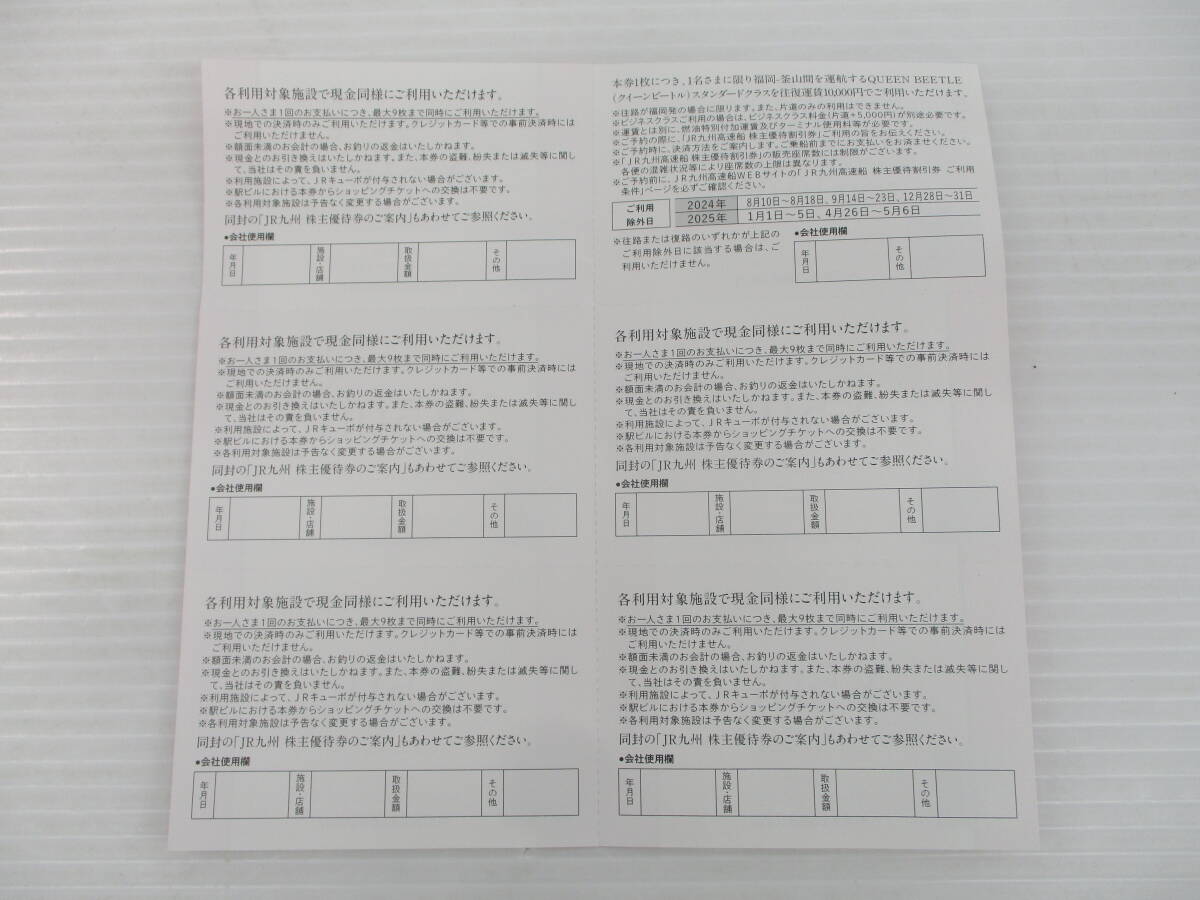 各利用対象施設で現金同様にご利用いただけます。
※お一人さま1回のお支払いにつき、最大9枚まで同時にご利用いただけます。
※現地での決済時のみご利用いただけます。クレジットカード等での事前決済時には
ご利用いただけません。
※額面未満のお会計の場合、お釣りの返金はいたしかねます。
※現金とのお引き換えはいたしかねます。また、本券の盗難、紛失または滅失等に関し
て、当社はその責を負いません。
※利用施設によって、JRキューポが付与されない場合がございます。
※駅ビルにおける本券からショッピングチケットへの交換は不要です。
※各利用対象施設は予告なく変更する場合がございます。
同封の「JR九州 株主優待券のご案内」もあわせてご参照ください。
●会社使用欄
年月日
施設・店舗
取扱金額
その他
本券1枚につき、1名さまに限り福岡-釜山間を運航するQUEEN BEETLE
(クイーンビートル)スタンダードクラスを往復運賃10,000円でご利用いただけます。
※往路が福岡発の場合に限ります。また、片道のみの利用はできません。
※ビジネスクラスご利用の場合は、ビジネスクラス料金(片道+5,000円)が別途必要です。
※運賃とは別に、燃油特別付加運賃及びターミナル使用料等が必要です。
※ご予約の際に、「JR九州高速船 株主優待割引券」ご利用の旨をお伝えください。
※ご予約時に、決済方法をご案内します。ご乗船前までにお支払いをお済ませください。
※「JR九州高速船 株主優待割引券」の販売座席数には制限がございます。
各便の混雑状況等により座席数の上限は異なります。
※ご予約前に、JR九州高速船WEBサイトの「JR九州高速船 株主優待割引券 ご利用
条件」ページを必ずご確認ください。
ご利用
除外日
2024年 8月10日~8月18日、9月14日~23日、12月28日~31日
2025年 1月1日~5日、4月26日~5月6日
※往路または復路のいずれかが上記の
ご利用除外日に該当する場合は、ご
利用いただけません。
●会社使用欄
年月日
その他
各利用対象施設で現金同様にご利用いただけます。
※お一人さま1回のお支払いにつき、最大9枚まで同時にご利用いただけます。
※現地での決済時のみご利用いただけます。クレジットカード等での事前決済時には
ご利用いただけません。
※額面未満のお会計の場合、お釣りの返金はいたしかねます。
※現金とのお引き換えはいたしかねます。また、本券の盗難、紛失または滅失等に関し
て、当社はその責を負いません。
※利用施設によって、JRキューポが付与されない場合がございます。
※駅ビルにおける本券からショッピングチケットへの交換は不要です。
※各利用対象施設は予告なく変更する場合がございます。
同封の「JR九州 株主優待券のご案内」もあわせてご参照ください。
●会社使用欄
年月日
施設・店舗
取扱金額
その他
各利用対象施設で現金同様にご利用いただけます。
※お一人さま1回のお支払いにつき、最大9枚まで同時にご利用いただけます。
※現地での決済時のみご利用いただけます。クレジットカード等での事前決済時には
ご利用いただけません。
※額面未満のお会計の場合、お釣りの返金はいたしかねます。
※現金とのお引き換えはいたしかねます。また、本券の盗難、紛失または滅失等に関し
て、当社はその責を負いません。
※利用施設によって、JRキューポが付与されない場合がございます。
※駅ビルにおける本券からショッピングチケットへの交換は不要です。
※各利用対象施設は予告なく変更する場合がございます。
同封の「JR九州 株主優待券のご案内」もあわせてご参照ください。
●会社使用欄
年月日
施設・店舗
取扱金額
その他
各利用対象施設で現金同様にご利用いただけます。
※お一人さま1回のお支払いにつき、最大9枚まで同時にご利用いただけます。
※現地での決済時のみご利用いただけます。クレジットカード等での事前決済時には
ご利用いただけません。
※額面未満のお会計の場合、お釣りの返金はいたしかねます。
※現金とのお引き換えはいたしかねます。また、本券の盗難、紛失または滅失等に関し
て、当社はその責を負いません。
※利用施設によって、JRキューポが付与されない場合がございます。
※駅ビルにおける本券からショッピングチケットへの交換は不要です。
※各利用対象施設は予告なく変更する場合がございます。
同封の「JR九州 株主優待券のご案内」もあわせてご参照ください。
●会社使用欄
年月日
施設・店舗
取扱金額
その他
各利用対象施設で現金同様にご利用いただけます。
※お一人さま1回のお支払いにつき、最大9枚まで同時にご利用いただけます。
※現地での決済時のみご利用いただけます。クレジットカード等での事前決済時には
ご利用いただけません。
※額面未満のお会計の場合、お釣りの返金はいたしかねます。
※現金とのお引き換えはいたしかねます。また、本券の盗難、紛失または滅失等に関し
て、当社はその責を負いません。
※利用施設によって、JRキューポが付与されない場合がございます。
※駅ビルにおける本券からショッピングチケットへの交換は不要です。
※各利用対象施設は予告なく変更する場合がございます。
同封の「JR九州 株主優待券のご案内」もあわせてご参照ください。
●会社使用欄
年月日
施設・店舗
取扱金額
その他